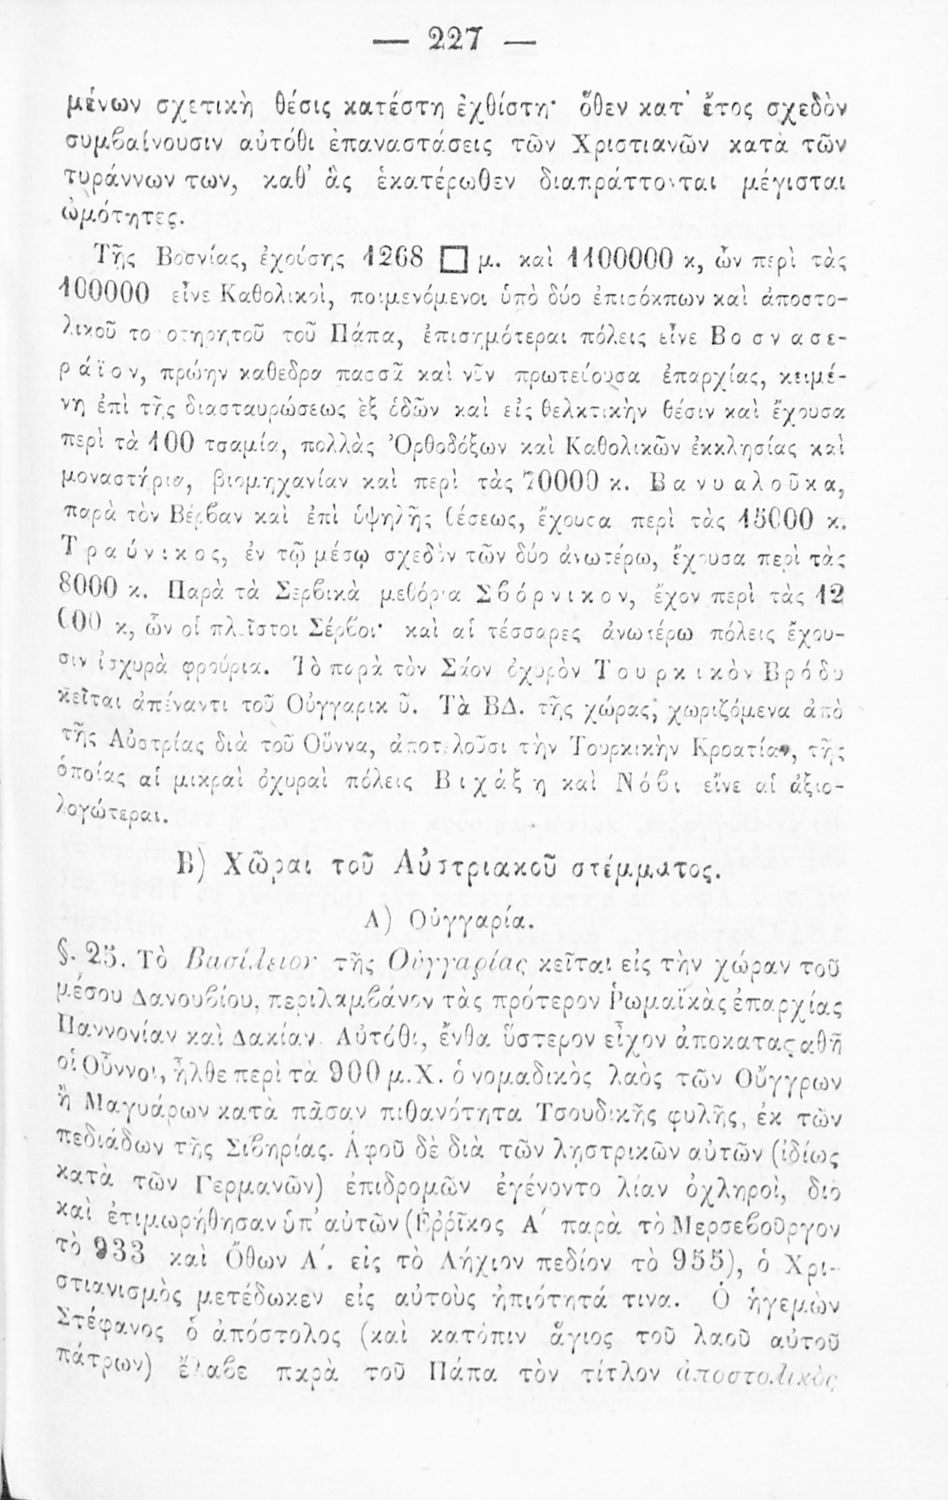 — 227 —
μένων σχετικὴ θέσις κατέστη ἐχθίστη· ὅθεν κατ' ἔτος σχεδὸν
συμβαίνουσιν αὐτόθι ἐπαναστάσεις τῶν Χριστιανῶν κατὰ τῶν
τυράννων των, καθ' ἃς ἑκατέρωθεν διαπράττονται μέγισται
ὠμότητες.
Τῆς Βοσνίας, ἐχούσης 1268 □ μ. καὶ 1100000 κ, ὧν περὶ τὰς
100000 εἶνε Καθολικοί, ποιμενόμενοι ὑπὸ δύο ἐπισόκπων καὶ ἀποστο-
λικοῦ το οτηρητοῦ τοῦ Πάπα, ἐπισημότεραι πόλεις εἶνε Βοσνασε-
ράϊον, πρώην καθεδρα πασσᾶ καὶ νῦν πρωτεύουσα ἐπαρχίας, κειμέ-
νη ἐπὶ τῆς διασταυρώσεως ἓξ ὁδῶν καὶ εἰς θελκτικὴν θέσιν καὶ ἔχουσα
περὶ τὰ 100 τσαμία, πολλὰς Ὀρθοδόξων καὶ Καθολικῶν ἐκκλησίας καὶ
μοναστήρια, βιομηχανίαν καὶ περὶ τὰς 70000 κ. Βανυαλοῦκα,
παρὰ τὸν Βέρβαν καὶ ἐπὶ ὑψηλῆς θέσεως, ἔχουσα περὶ τὰς 15000 κ.
Τραύνικος, ἐν τῷ μέσῳ σχεδὸν τῶν δύο ἀνωτέρω, ἔχουσα περὶ τὰς
8000 κ. Παρὰ τὰ Σερβικὰ μεθόρια Σβόρνικον, ἔχον περὶ τὰς 12
000 κ, ὧν οἱ πλεῖστοι Σέρβοι· καὶ αἱ τέσσαρες ἀνωτέρω πόλεις ἔχου-
σιν ἰσχυρὰ φρούρια. Τὸ παρὰ τὸν Σάον ὀχυρὸν Τουρκικὸν Βρόδυ
κεῖται ἀπέναντι τοῦ Οὑγγαρικοῦ. Τὰ ΒΔ. τῆς χώρας, χωριζόμενα ἀπὸ
τῆς Αὐστρίας διὰ τοῦ Οὔννα, ἀποτελοῦσι τὴν Τουρκικὴν Κροατίαν, τῆς
ὁποίας αἱ μικραὶ ὀχυραὶ πόλεις Βιχάξη καὶ Νόβι εἶνε αἱ ἀξιο-
λογώτεραι.
Β) Χῶραι τοῦ Αὐστριακοῦ στέμματος.
Α) Οὑγγαρία.
§. 25. Τὸ Βασίλειον τῆς Οὑγγαρίας κεῖται εἰς τὴν χώραν τοῦ
μέσου Δανουβίου, περιλαμβάνον τὰς πρότερον Ῥωμαϊκὰς ἐπαρχίας
Παννονίαν καὶ Δακίαν. Αὐτόθι, ἔνθα ὕστερον εἶχον ἀποκαταςαθῆ
οἱ Οὗννοι, ἦλθε περὶ τὰ 900 μ.Χ. ὁ νομαδικὸς λαὸς τῶν Οὔγγρων
ἢ Μαγυάρων κατὰ πᾶσαν πιθανότητα Τσουδικῆς φυλῆς, ἐκ τῶν
πεδιάδων τῆς Σιβηρίας. Ἀφοῦ δὲ διὰ τῶν λῃστρικῶν αὐτῶν (ἰδίως
κατὰ τῶν Γερμανῶν) ἐπιδρομῶν ἐγένοντο λίαν ὀχληροί, διὸ
καὶ ἐτιμωρήθησαν ὑπ' αὐτῶν (Ἐῤῥῖκος Α΄ παρὰ τὸ Μερσεβοῦργον
τὸ 933 καὶ Ὄθων Α΄. εἰς τὸ Λήχιον πεδίον τὸ 955), ὁ Χρι-
στιανισμὸς μετέδωκεν εἰς αὐτοὺς ἠπιότητά τινα. Ὁ ἡγεμὼν
Στέφανος ὁ ἀπόστολος (καὶ κατόπιν ἅγιος τοῦ λαοῦ αὐτοῦ
πάτρων) ἔλαβε παρὰ τοῦ Πάπα τὸν τίτλον ἀποστολικὸς